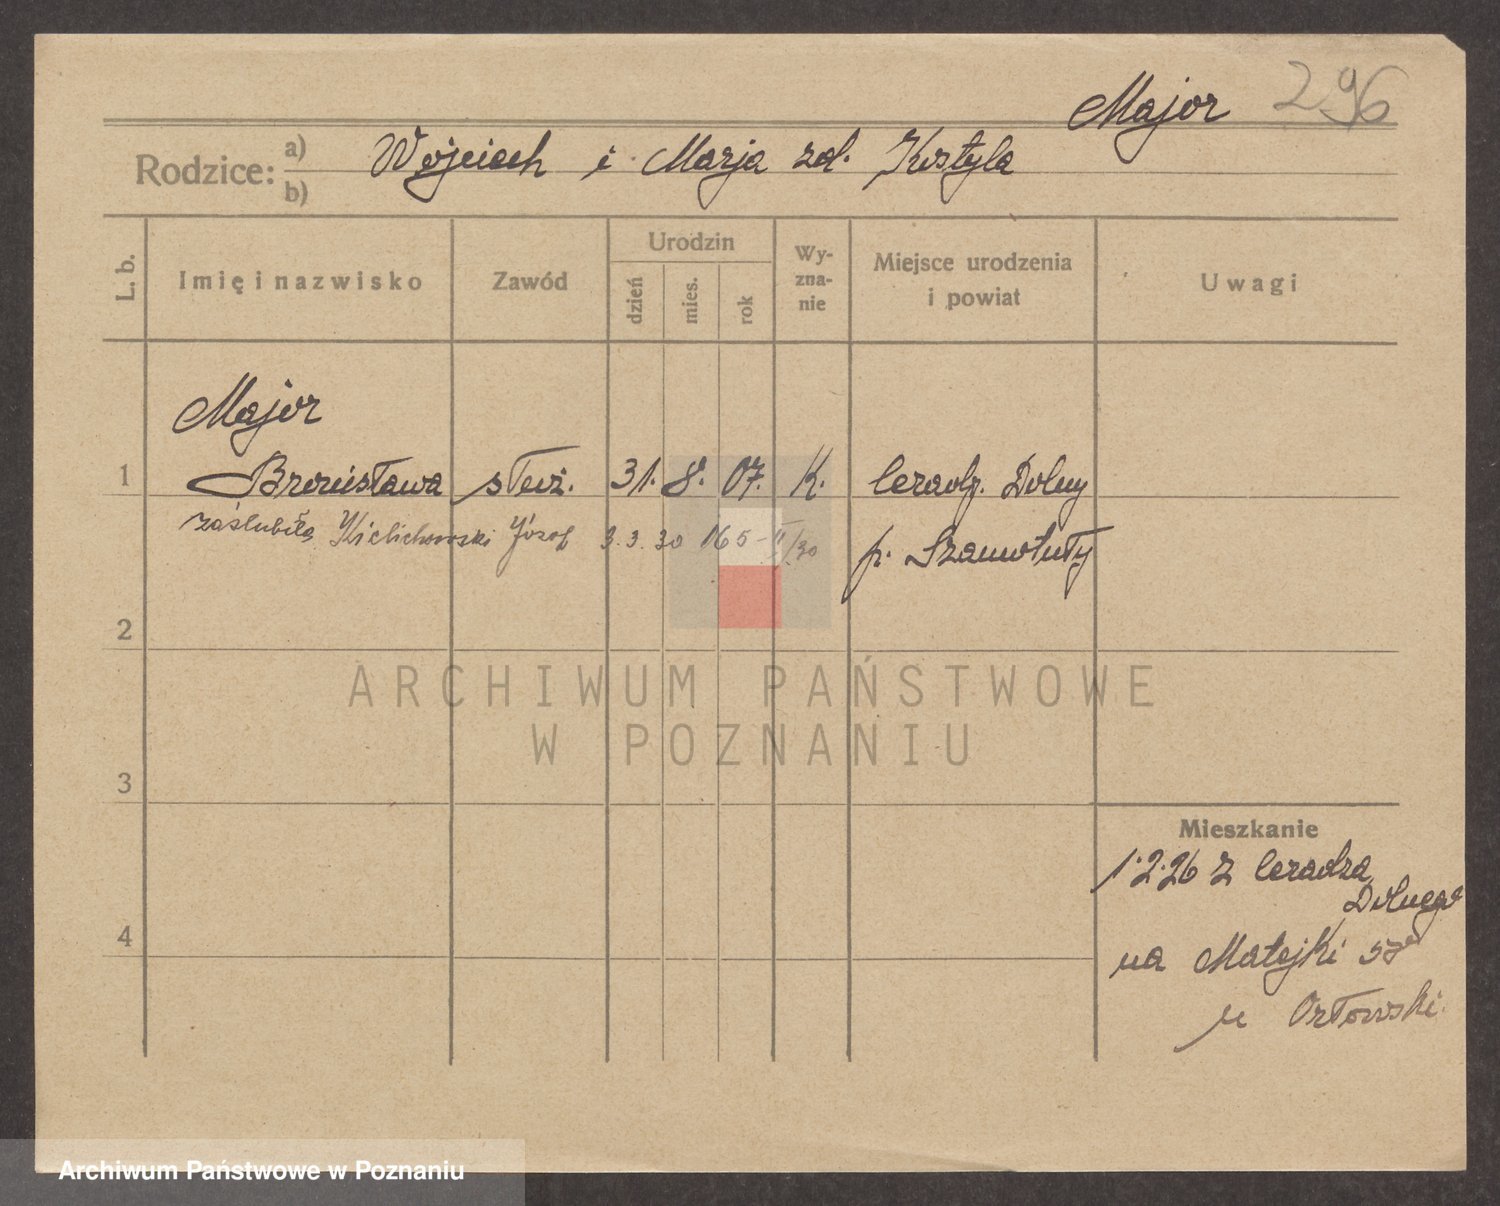 Major 296
Rodzice: a) b) Wojciech i Marja zd. Krztyla
L. b.
Imię i nazwisko
Zawód
Urodzin
dzień
mies.
rok
Wy-
zna-
nie
Miejsce urodzenia
i powiat
Uwagi
Major
1 Bronisława służ. 31. 8. 07. K. Czradz. Dolny
zaślubiła Kielichowski Józef 3.3.30 165-II/30 p. Szamotuły
2
3
4
Mieszkanie
1.2.26 z Czradza
Dolnego
na Matejki
u Orłowski.
ARCHIWUM PAŃSTWOWE
W POZNANIU
Archiwum Państwowe w Poznaniu